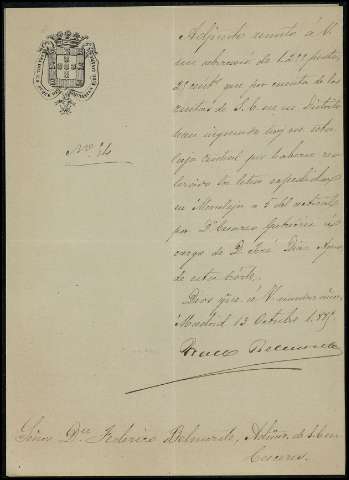 Nº. 74
Adjunto remito á V.
un abonaré de 1.277 pesetas
25 cents. que por cuenta de las
rentas de S. E. en su distrito
han ingresado hoy en esta
Caja Central por haberse rea-
lizado la letra expedida
en Montejo a 5 del actual
por Dn. Cesareo á
cargo de D. José Diaz
de esta Córte.
Dios gue. á V. muchos años.
Madrid 13 Octubre 1.87
Belmonte
Señor Dn. Federico Belmonte, Admor. de S. E. en
Caceres.